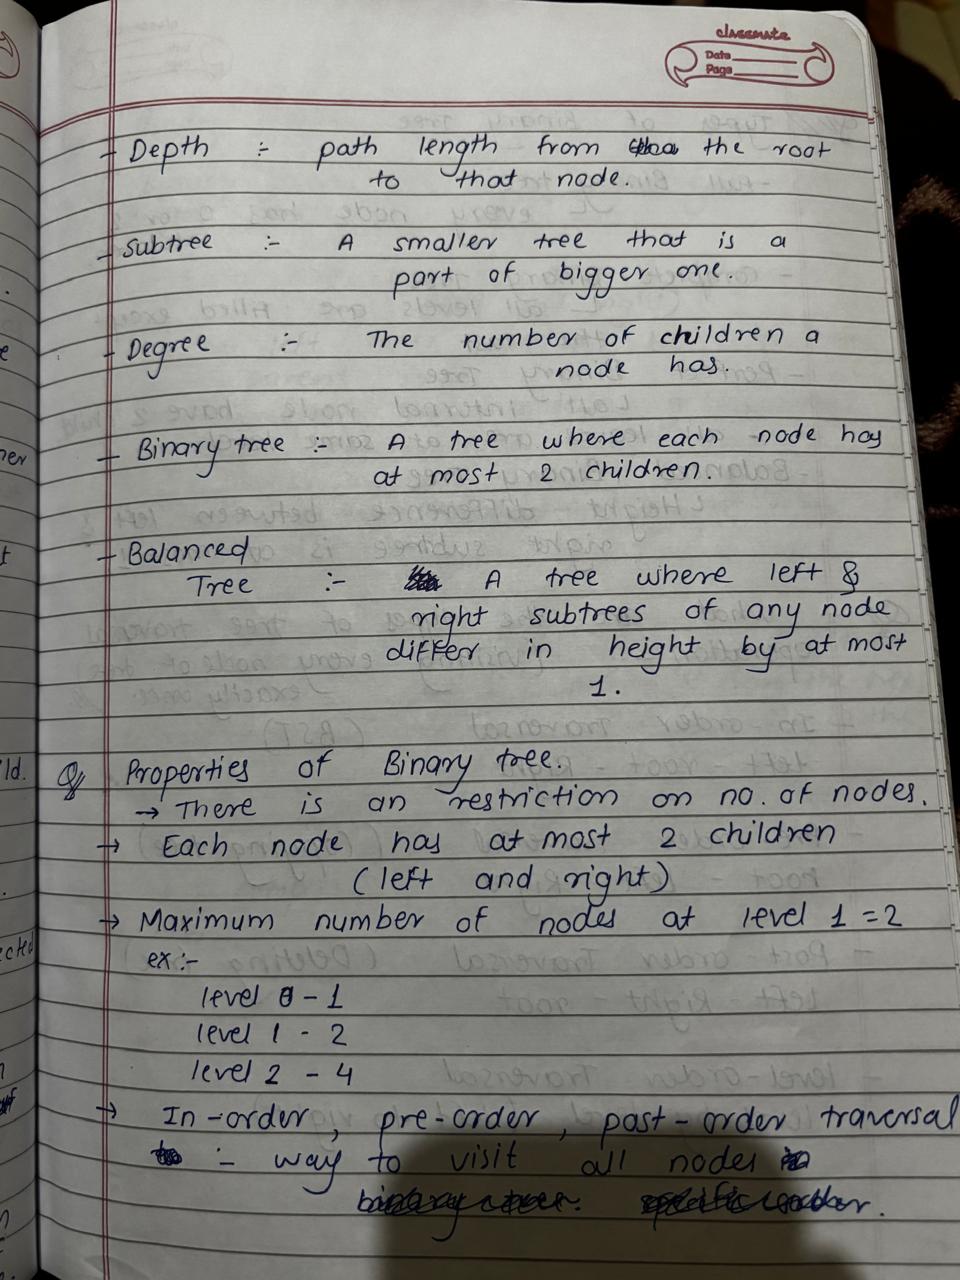 classmate
Date
Page
- Depth :- path length from the root
to that node.
- Subtree :- A smaller tree that is a
part of bigger one.
- Degree :- The number of children a
node has.
- Binary tree :- A tree where each node has
at most 2 children.
- Balanced
Tree :- A tree where left &
right subtrees of any node
differ in height by at most
1.
Q Properties of Binary tree.
→ There is an restriction on no. of nodes.
→ Each node has at most 2 children
(left and right)
→ Maximum number of nodes at level 1 = 2
ex:-
level 0 - 1
level 1 - 2
level 2 - 4
→ In-order, pre-order, past-order traversal
:- way to visit all nodes